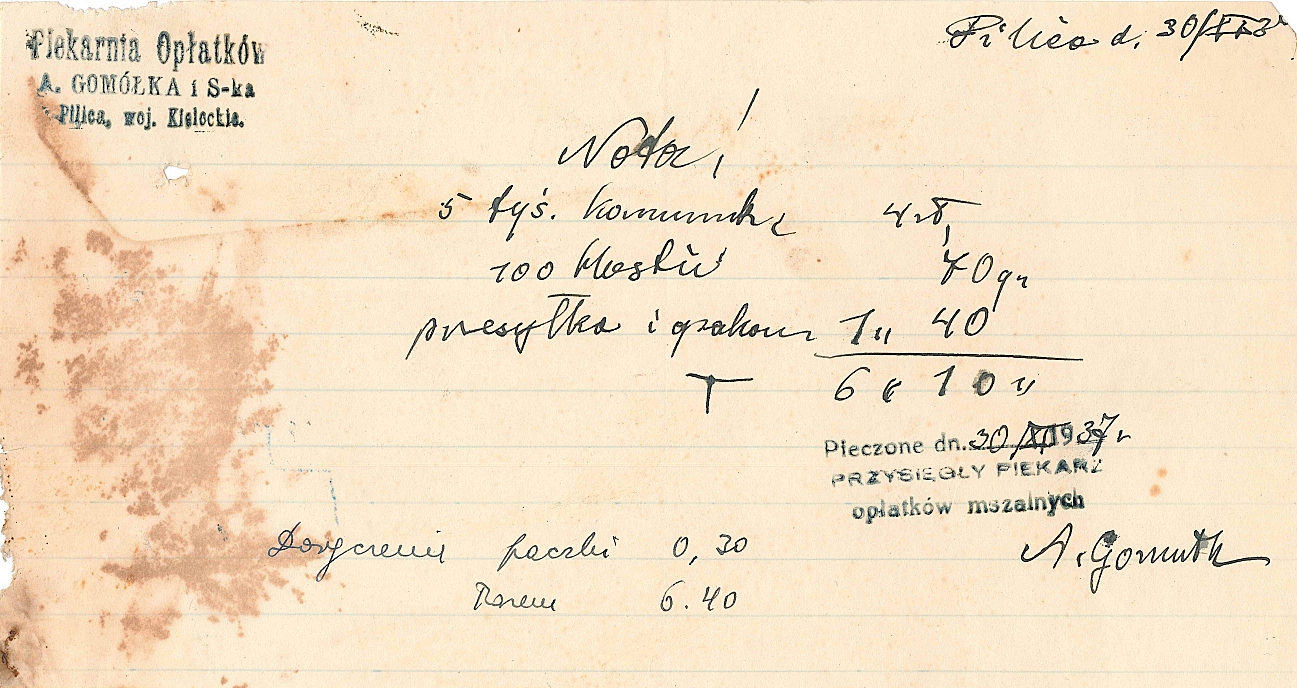 Piekarnia Opłatków
A. GOMÓŁKA i S-ka
Pilica, woj. Kieleckie.
Pilica d. 30/XI 37
Nota!
5 tyś. komunik 4 zł,
100 Hostii 70 gr
przesyłka i opakow 1 „ 40
6 „ 10 „
Pieczone dn. 30/XI 1937 r
PRZYSIĘGŁY PIEKARZ
opłatków mszalnych
A. Gomułk
Doręczenie paczki 0,30
Razem 6.40